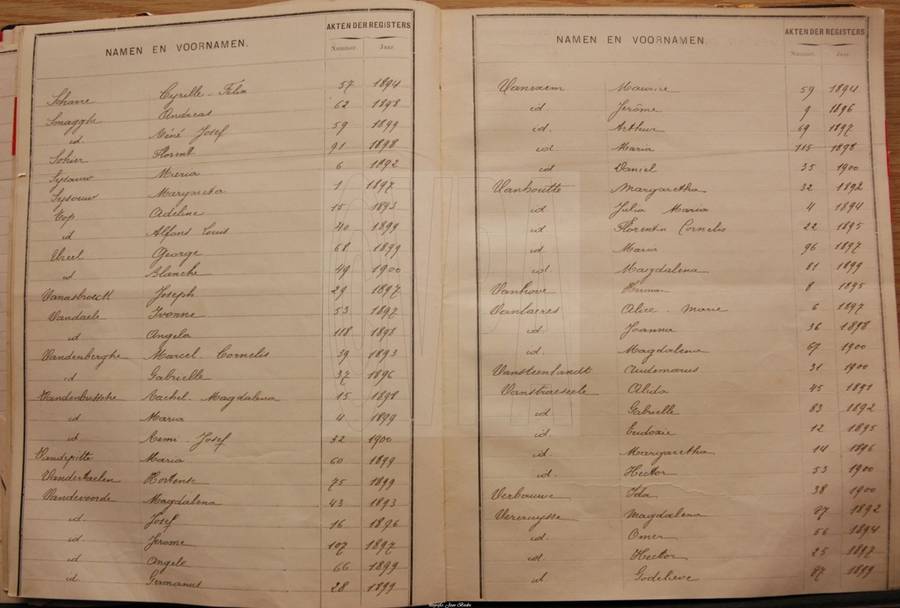 NAMEN EN VOORNAMEN. AKTEN DER REGISTERS
Nummer. Jaar.
Schave Cyrille - Felix 57 1894
Smagghe Andreas 62 1898
id René Josef 59 1899
Sohier Florent 91 1898
Sysauw Maria 6 1892
Sysouw Margareta 1 1897
Top Adeline 15 1893
id Alfons Louis 40 1899
George 68 1899
id Blanche 49 1900
Vanasbroeck Joseph 29 1897
Vandaele Yvonne 53 1897
id Angela 118 1898
Vandenberghe Marcel Cornelis 39 1893
id Gabrielle 37 1896
Vandenbussche Rachel Magdalena 15 1898
id Maria 4 1899
id Remi Josef 32 1900
Vandepitte Maria 60 1899
Vanderhaeken Hortense 75 1899
Vandevoorde Magdalena 43 1893
id. Josef 16 1896
id. Jerome 107 1897
id Angele 66 1899
id Germanus 28 1899
NAMEN EN VOORNAMEN. AKTEN DER REGISTERS
Nummer. Jaar.
Maurice 59 1894
id Jerôme 9 1896
id. Arthur 69 1897
id Maria 115 1898
id Daniel 35 1900
Vanhoutte Margaretha 32 1892
id Julia Maria 4 1894
id Florentin Cornelis 22 1895
id Maria 96 1897
id. Magdalena 81 1899
Vanhove 8 1895
Vanlaeres Alice - Marie 6 1897
id. Joanna 36 1898
id. Magdalena 67 1900
Vansteenlandt Audomarus 31 1900
Vanstraeseele Alida 45 1891
id Gabrielle 83 1892
id. Eudoxie 12 1895
id Margaretha 14 1896
id. Hector 53 1900
Verbauwe Ida 38 1900
Vercruysse Magdalena 97 1892
id. Omer 56 1894
id. Hector 25 1897
id Godelieve 87 1899